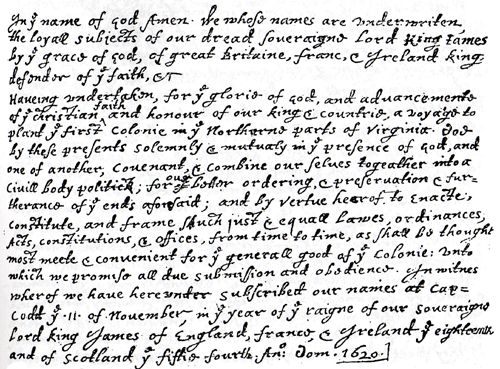 In yͤ name of god Amen. We whose names are underwriten,
the loyall subjects of our dread soveraigne Lord King James
by yͤ grace of god, of great Britaine, franc, & Ireland king,
defender of yͤ faith, &c
Haveing undertaken, for yͤ glorie of god, and advancemente
of yͤ christian faith and honour of our king & countrie, a voyage to
plant yͤ first colonie in yͤ Northerne parts of Virginia. Doe
by these presents solemnly & mutualy in yͤ presence of god, and
one of another, covenant, & combine our selves togeather into a
Civill body politick; for our better ordering, & preservation & fur=
therance of yͤ ends aforesaid; and by vertue hearof, to Enacte,
constitute, and frame shuch just & equall Lawes, ordinances,
Acts, constitutions, & offices, from time to time, as shall be thought
most meete & convenient for yͤ generall good of yͤ colonie: unto
which we promise all due submission and obedience. In witnes
wherof we have hereunder subscribed our names at Cap=
Codd yͤ .11. of November, in yͤ year of yͤ raigne of our soveraigne
Lord king James of England, france, & Ireland yͤ eighteenth
and of scotland yͤ fiftie fourth. Anͦ: Dom. 1620.]